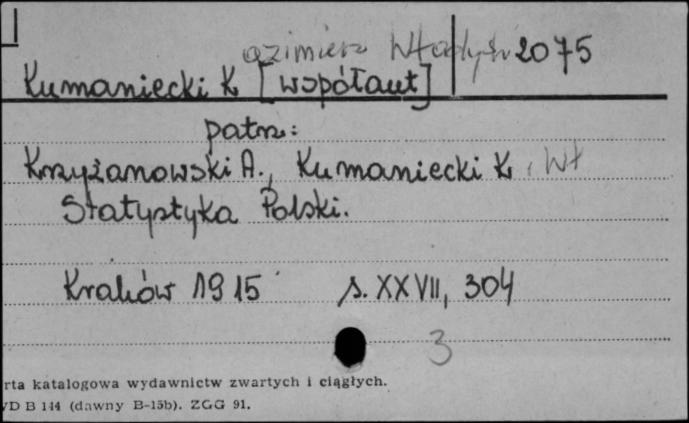 azimierz Władysł 2075
Kumaniecki K [współaut]
patrz:
Krzyżanowski A., Kumaniecki K. Wł
Statystyka Polski.
Kraków 1915 s. XXVII, 304
3
rta katalogowa wydawnictw zwartych i ciągłych.
VD B 144 (dawny B-15b). ZGG 91.